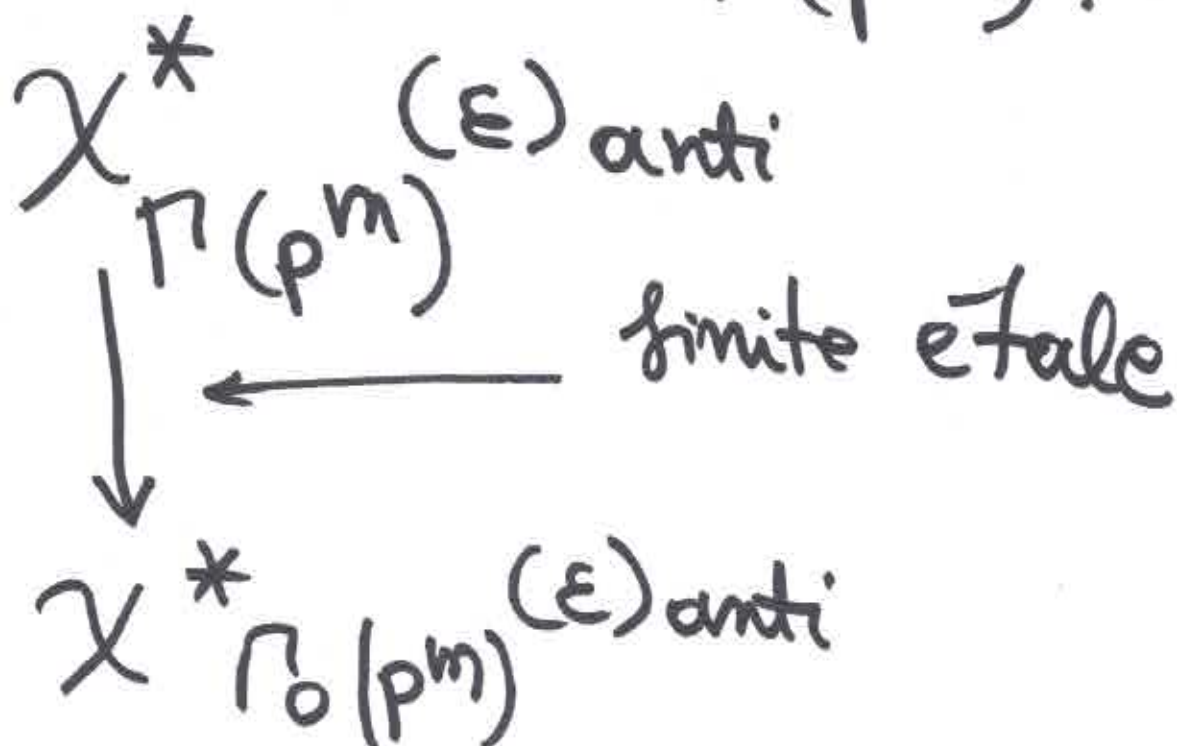 χ*_{Γ(p^m)}(ε)_{anti}
finite etale
χ*_{Γ_0(p^m)}(ε)_{anti}